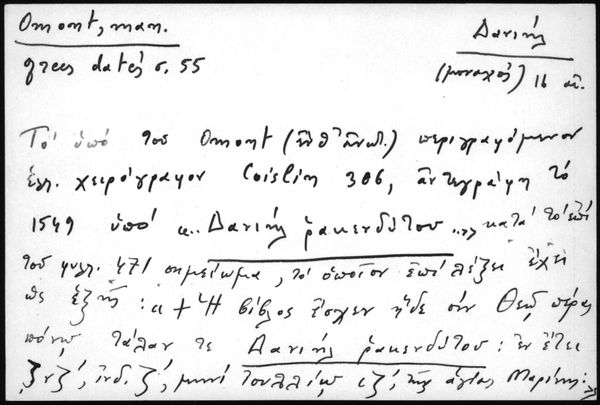 Omont, man.
grecs datés σ. 55
Δανιήλ
(μοναχός) 16 αἰ.
Τό ὑπό τοῦ Omont (ἔνθ' ἀνωτ.) περιγραφόμενον
ἑλλ. χειρόγραφον Coislin 306, ἀντεγράφη τό
1549 ὑπό «.. Δανιήλ ῥακενδύτου ..» κατά τό ἐπί
τοῦ φυλλ. 471 σημείωμα, τό ὁποῖον ἐπί λέξει ἔχει
ὡς ἑξῆς: « + Ἡ βίβλος ἔσχεν ἥδε σύν Θεῷ πέρας
πόνῳ τάλαν τε Δανιήλ ῥακενδύτου: ἐν ἔτει
ζνζ', ἰνδ. ζ', μηνί Ἰουλλίῳ ιζ', τῆς ἁγίας Μαρίνης: »